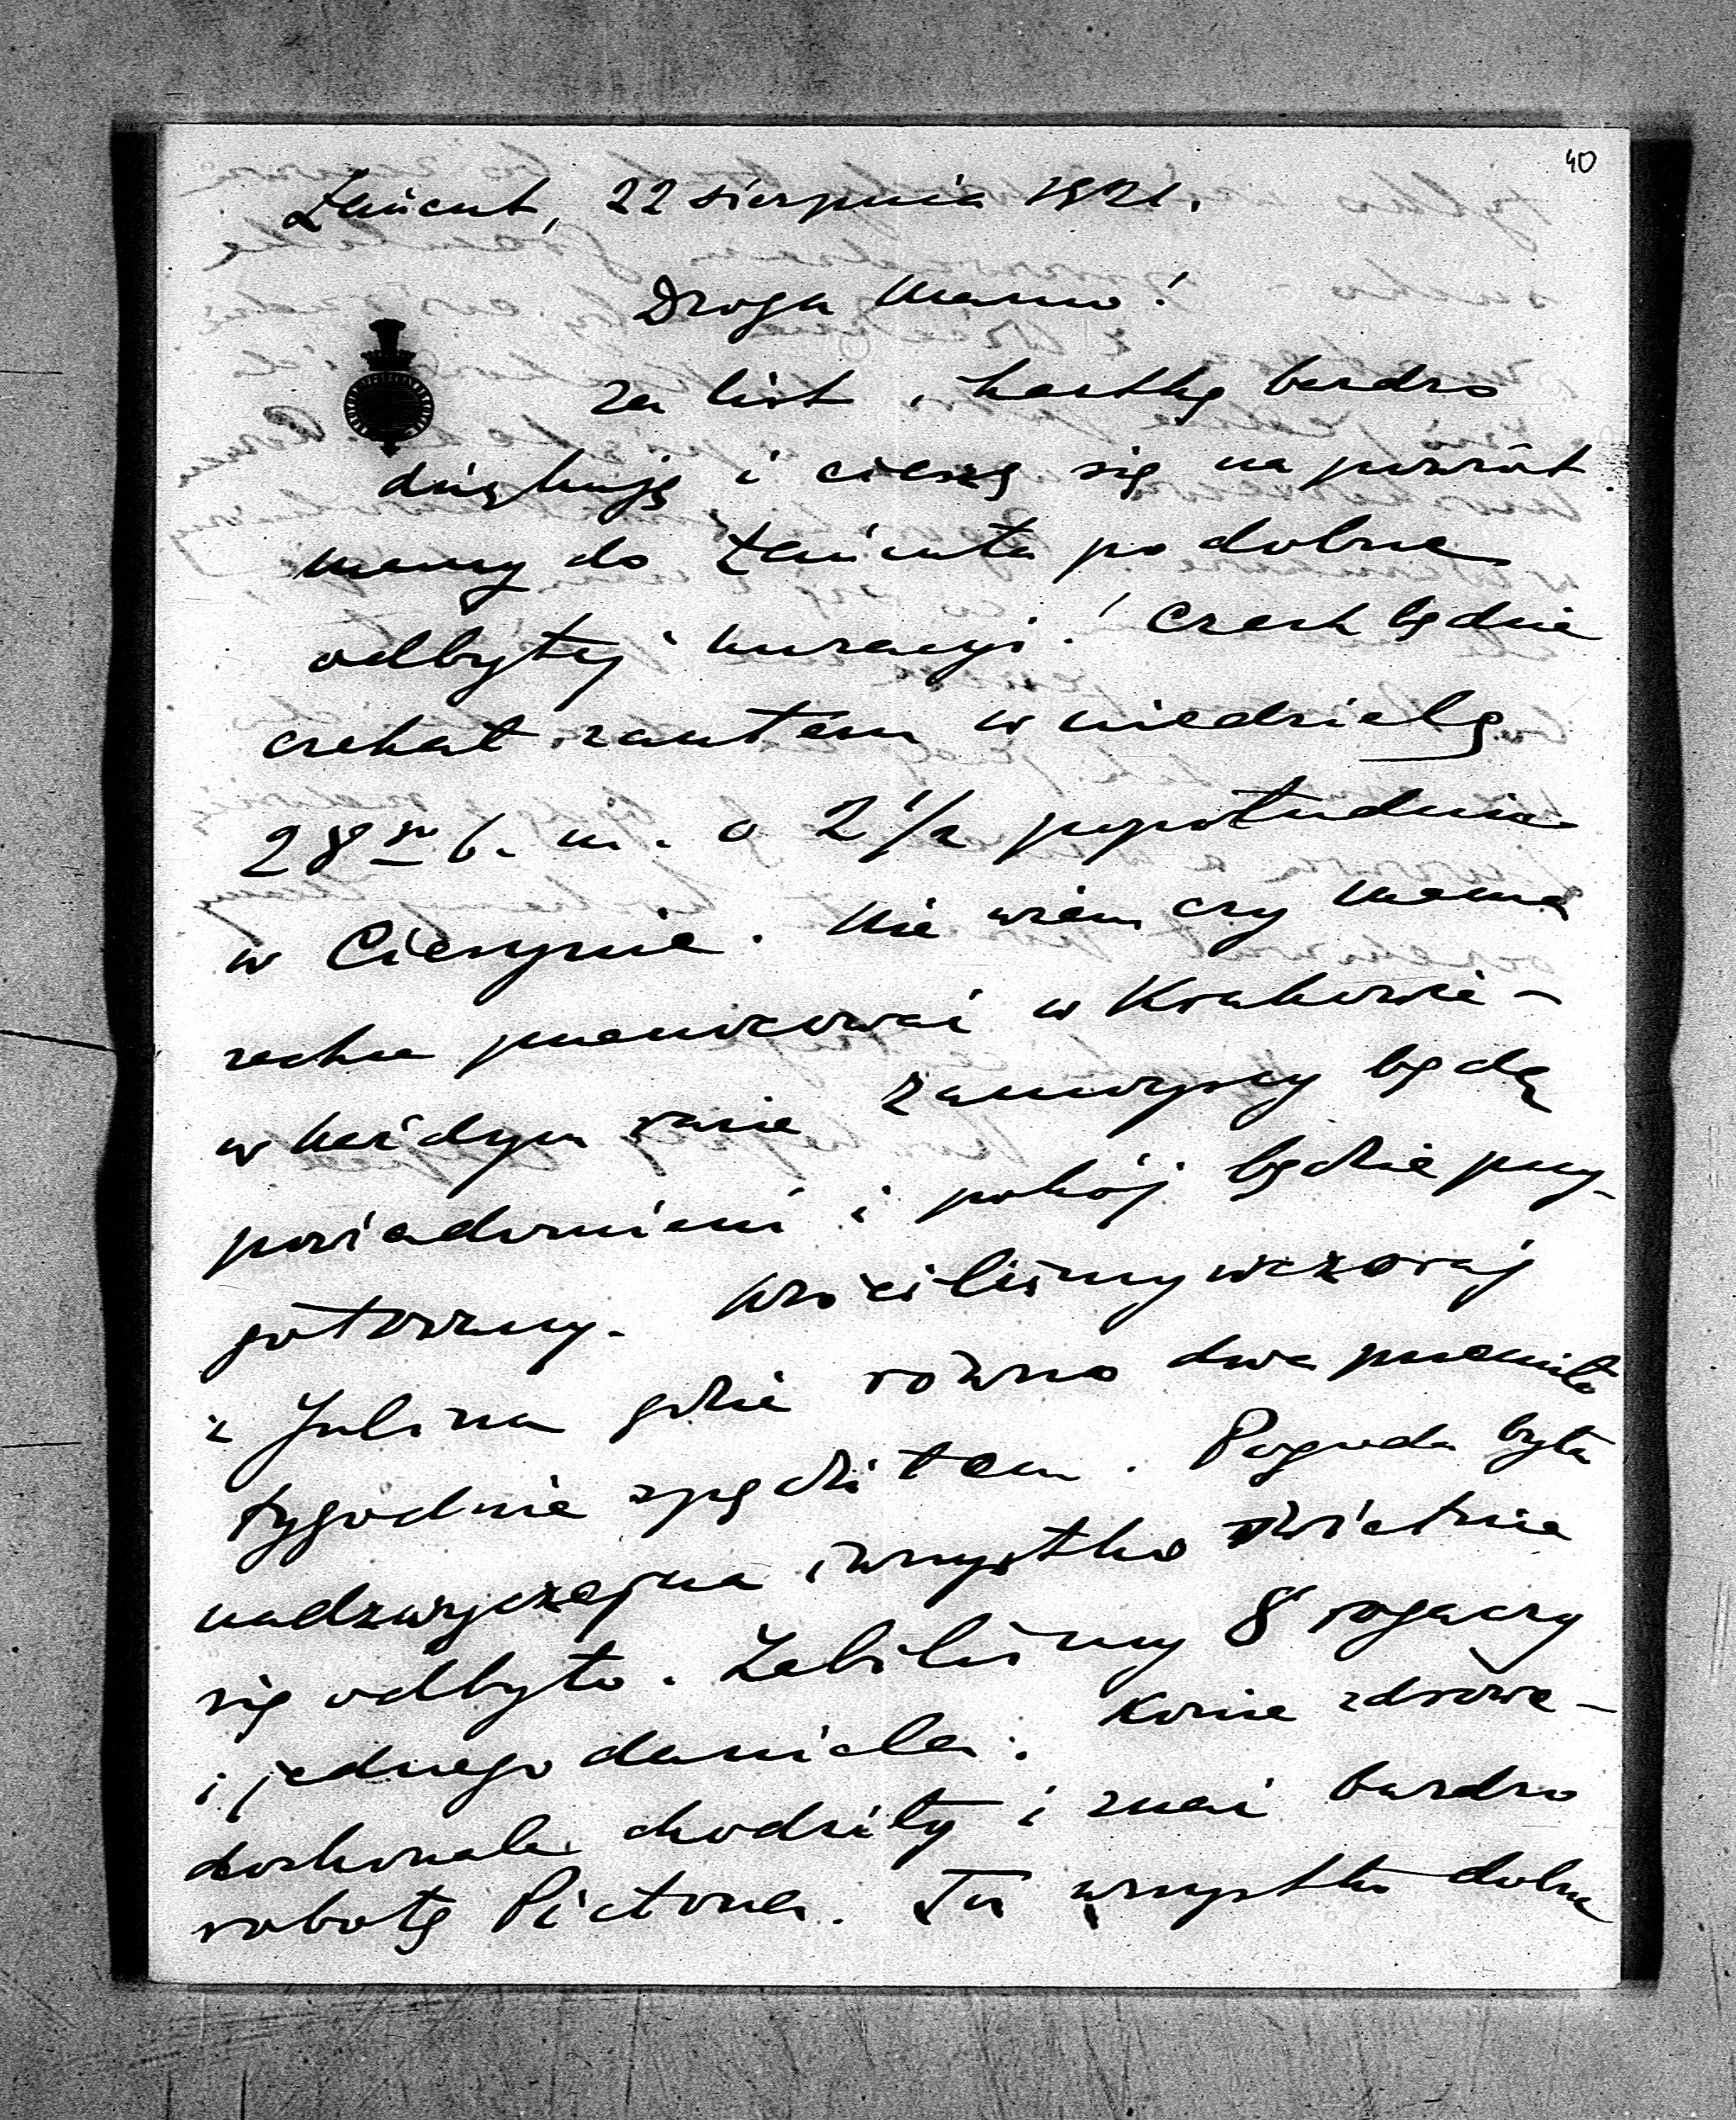 40
Łańcut, 22 sierpnia 1921.
Droga Mamo!
Za list i kartkę bardzo
dziękuję i cieszę się na powrót
mamy do Łańcuta po dobrze
odbytej kuracyi! Czech będzie
czekał z autem w niedzielę
28go b. m. o 2 1/2 popołudniu
w Cieszynie. Nie wiem czy mama
zechce przenocować w Krakowie –
w każdym razie Zamoyscy będą
powiadomieni i pokój będzie przy-
gotowany. Wróciliśmy wczoraj
z Julina gdzie równo dwa przemiłe
tygodnie spędziłem. Pogoda była
nadzwyczajna i wszystko świetnie
się odbyło. Zabiliśmy 8 rogaczy
i jednego daniela. Konie zdrowe –
doskonale chodziły i znać bardzo
robotę Pictona. Tu wszystko dobrze